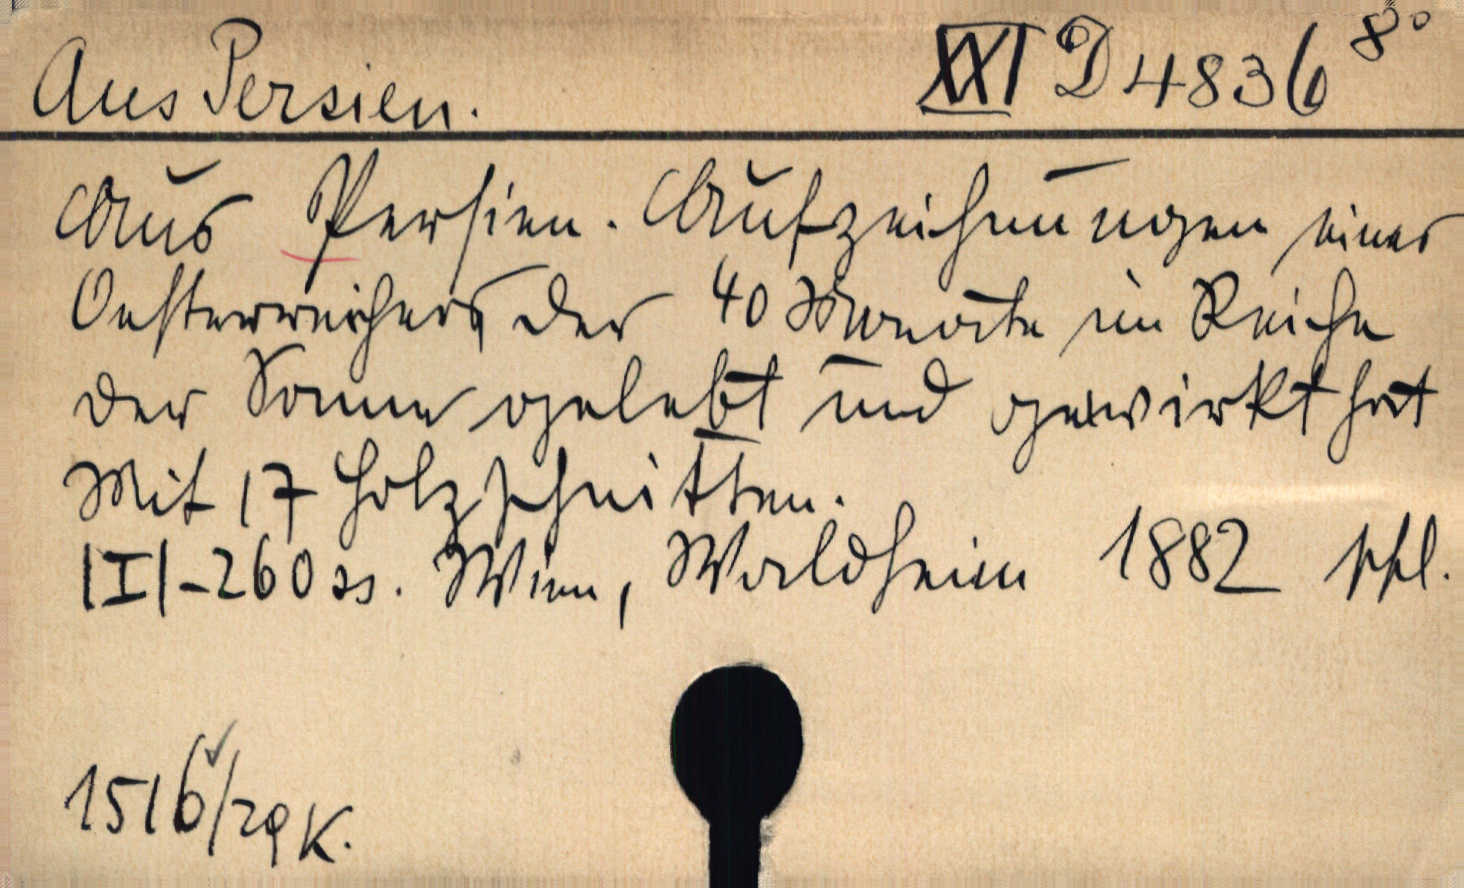 Aus Persien. XXI D 4836 8°
Aus Persien. Aufzeichnungen eines
Oesterreichers der 40 Monate im Reiche
der Sonne gelebt und gewirkt hat
Mit 17 Holzschnitten.
|I|-260 ss. Wien, Waldheim 1882 ppl.
1516/29 K.